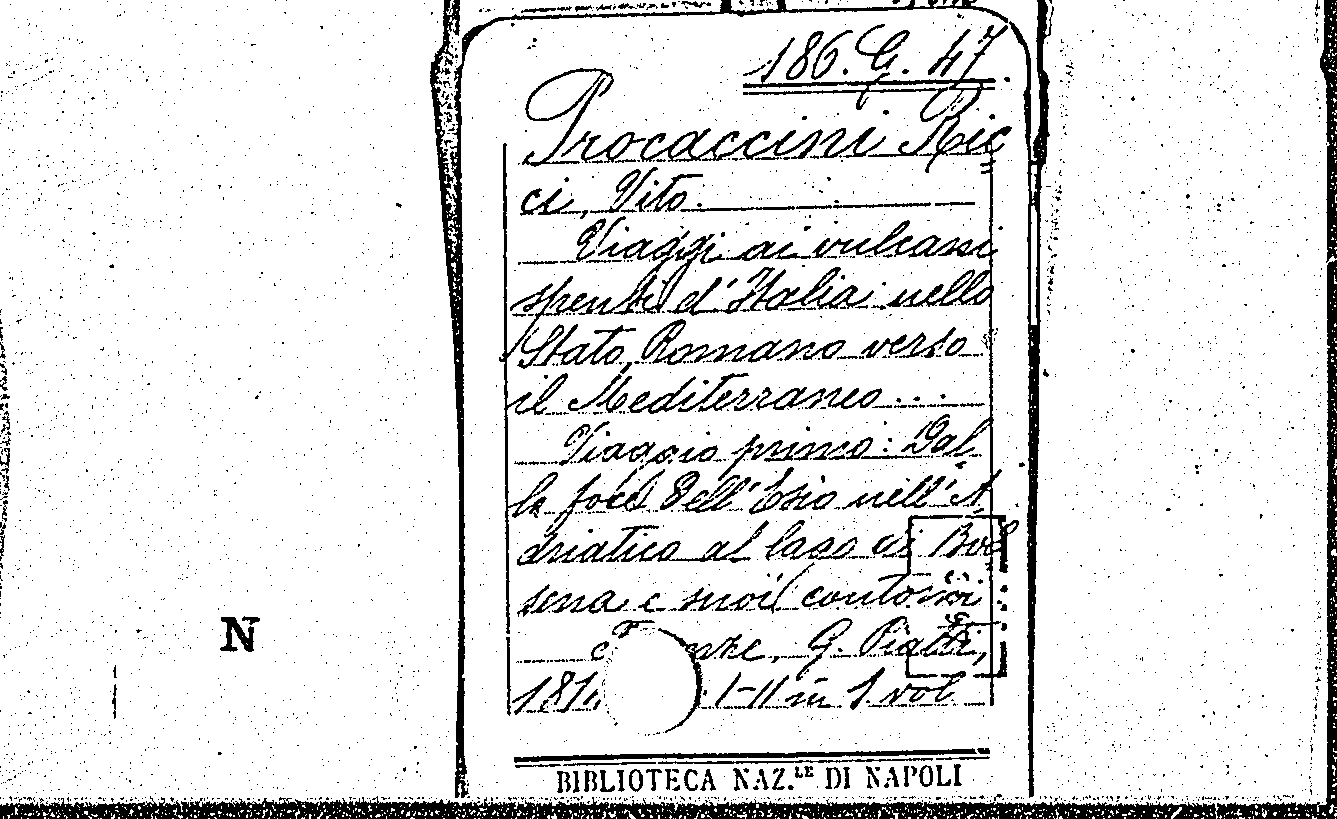 186. G. 47.
Procaccini Ric
ci, Vito.
Viaggi ai vulcani
spenti d'Italia nello
Stato Romano verso
il Mediterraneo...
Viaggio primo: Dal
la foce dell'Esio nell'A
driatico al lago di Bol
sena e suoi contorni
G. Piatti,
I-II in 1 vol
N
BIBLIOTECA NAZ.LE DI NAPOLI